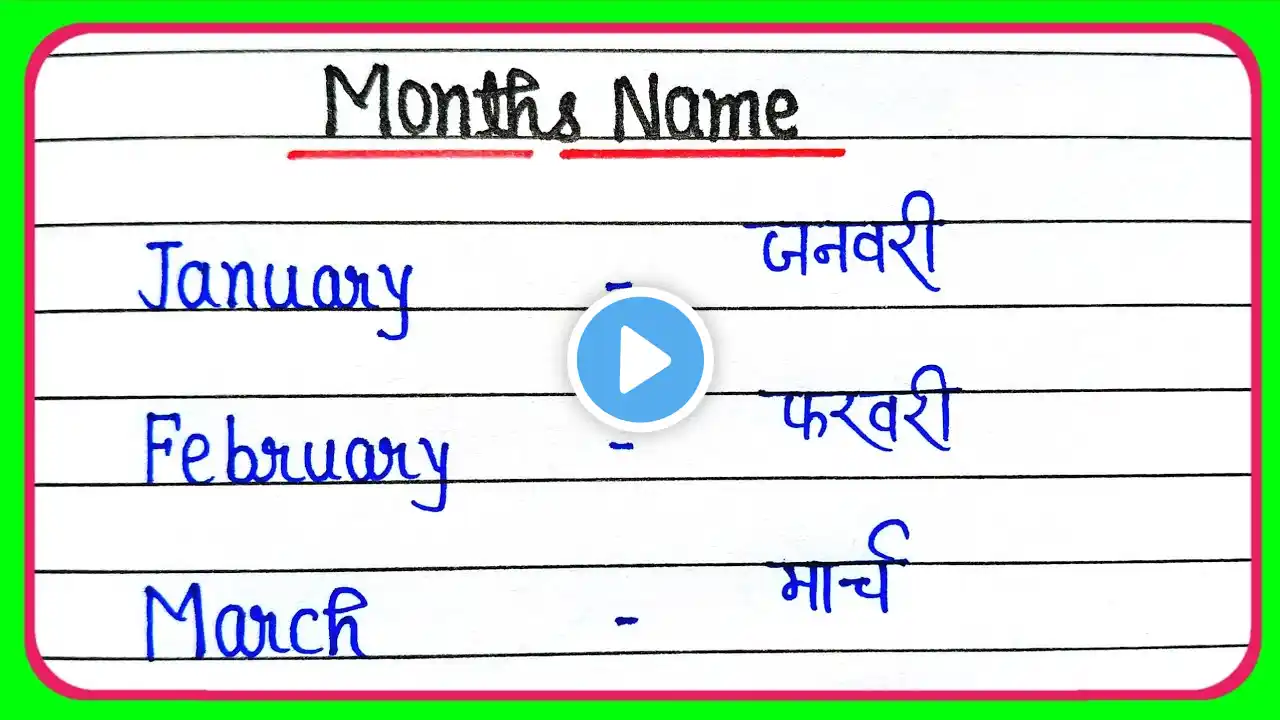 Months Name
January - जनवरी
February - फरवरी
March - मार्च